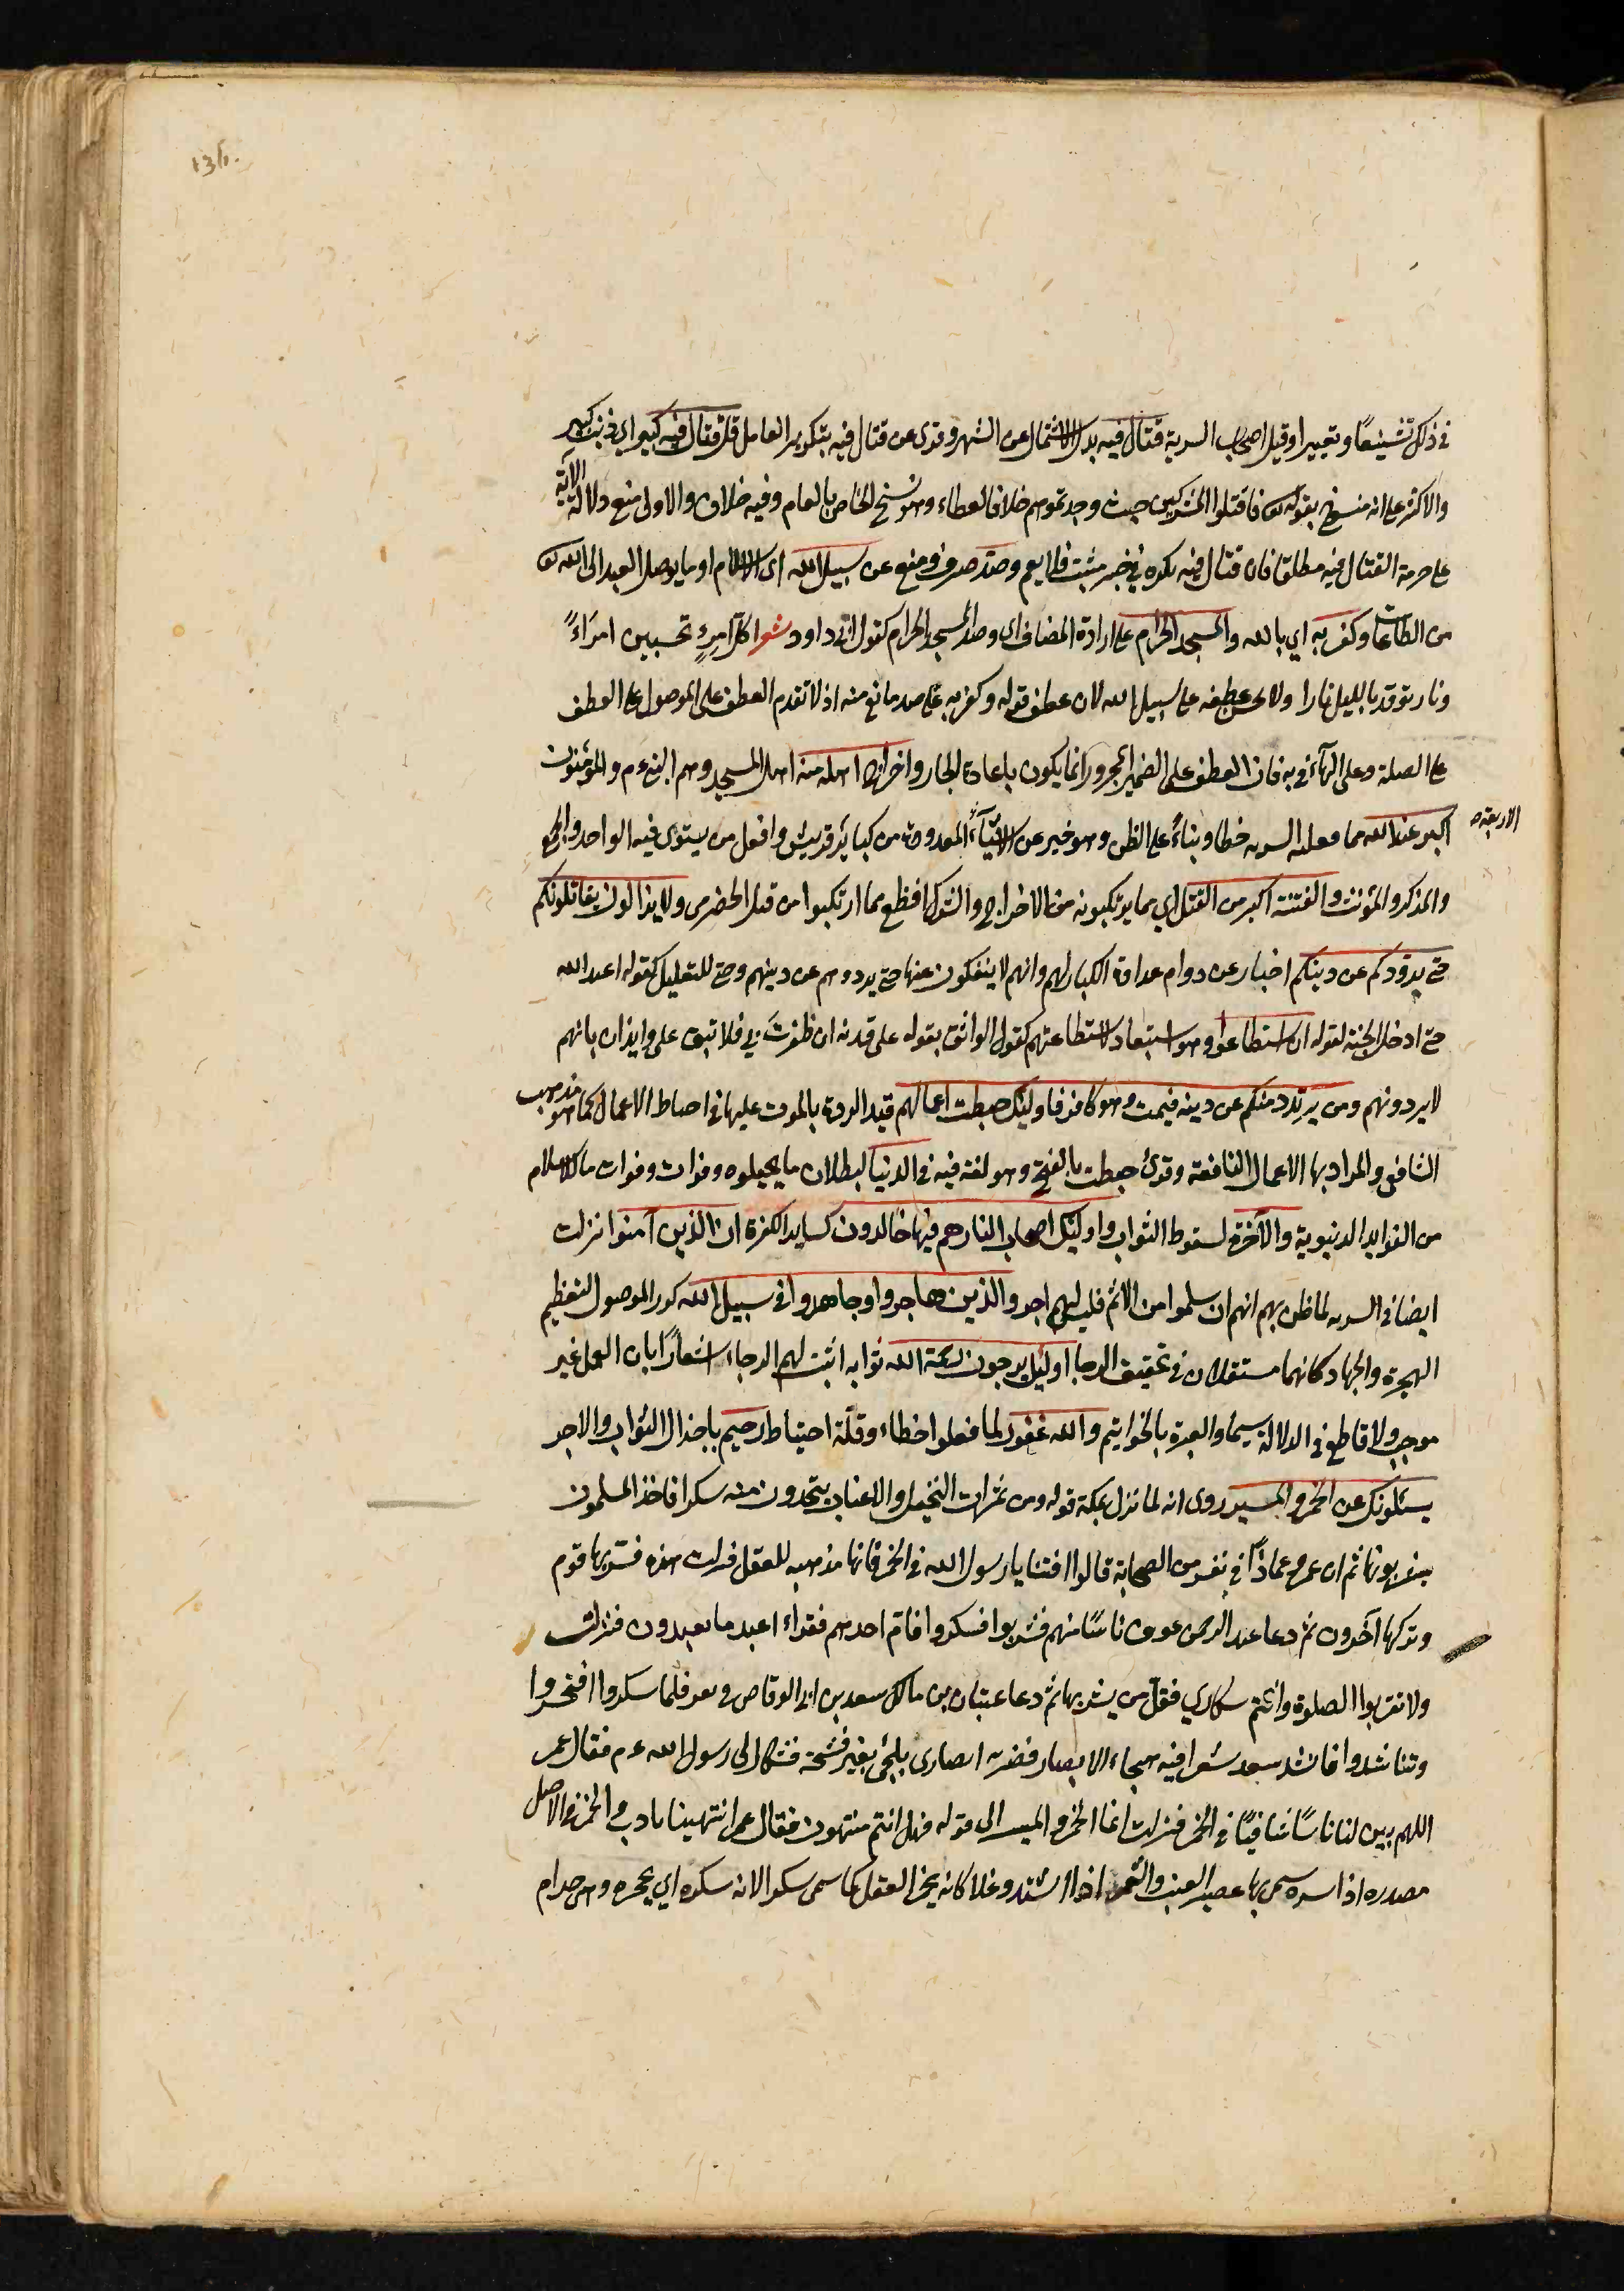 136.
في ذلك تشنيعًا وتعييرا وقيل اصحاب السرية قتال فيه بدل الاشتمال عن الشهر وقرئ عن قتال فيه بتكرير العامل قل قتال فيه كبير اي ذنب كبير
والاكثر على انه منسوخ بقوله تع فاقتلوا المشركين حيث وجدتموهم خلافا لعطاء وهو نسخ الخاص بالعام وفيه خلاف والاولى منع دلالة الآية
على حرمة القتال فيه مطلقا فان قتال فيه نكره في خبر مثبت فلا يعم وصد صرف ومنع عن سبيل الله اى الاسلام او ما يوصل العبد الى الله تع
من الطاعات وكفر به اي بالله والمسجد الحرام على ارادة المضاف اى وصد المسجد الحرام كقول ابى داود شعر اكل امرءٍ تحسبين امرَاءً
ونار توقد بالليل نارا ولا يحسن عطفه على سبيل الله لان عطف قوله وكفر به على صد مانع منه اذ لا تقدم العطف على الموصول على العطف
على الصلة وعلى الهآء في به فان العطف على الضمير المجرور انما يكون باعادة الجار واخراج اهله منه اهل المسجد وهم النبي عم والمؤمنون
اكبر عند الله مما فعلته السريه خطا وبناءً على الظن وهو خبر عن الاشيآء المعدودة من كبائر قريش وافعل من يستوى فيه الواحد والجمع
الاربعة صح
والمذكر والمؤنث والفتنة اكبر من القتل اي مما يرتكبونه من الاخراج والشرك افظع مما ارتكبوا من قتل الحضرمى ولا يزالون يقاتلونكم
حتى يردوكم عن دينكم اخبار عن دوام عداوة الكفار لهم وانهم لا ينفكون عنها حتى يردوهم عن دينهم وحتى للتعليل كقوله اعبد الله
حتى ادخل الجنة لقوله ان استطاعوا وهو استبعاد لاستطاعتهم كقول الواثق بقوله على قرنه ان ظفرت بي فلا تبق على وايذان بانهم
لا يردونهم ومن يرتدد منكم عن دينه فيمت وهو كافر فاوليك حبطت اعمالهم قيد الردة بالموت عليها في احباط الاعمال كما هو مذهب
الشافعى والمراد بها الاعمال النافعة وقرئ حبطت بالفتح وهو لغة فيه في الدنيا لبطلان ما يخيلوه وفوات وفوات ما للاسلام
من الفوايد الدنيوية والآخرة لسقوط الثواب واوليك اصحاب النار هم فيها خالدون كساير الكفرة ان الذين آمنوا نزلت
ايضا في السريه لما ظن بهم انهم ان سلموا من الاثم فليس لهم اجر والذين هاجروا وجاهدوا في سبيل الله كرر الموصول لتعظيم
الهجرة والجهاد كانهما مستقلان في تحقيق الرجا اوليك يرجون رحمة الله ثوابه اثبت لهم الرجاء اشعارًا بان العمل غير
موجب ولا قاطع في الدلالة سيما والعبرة بالخواتيم والله غفور لما فعلوا خطاء وقلّة احتياط رحيم باجزال الثواب والاجر
يسئلونك عن الخمر والميسر روى انه لما نزل بمكة قوله ومن ثمرات النخيل والاعناب يتخذون منه سكرا فاخذ المسلمون
يشربونها ثم ان عمر ومعاذًا في نفر من الصحابة قالوا افتنا يا رسول الله في الخمر فانها مذهبه للعقل فنزلت هذه فشربها قوم
وتركها آخرون ثم دعا عبد الرحمن عوف ناسًا منهم فشربوا فسكروا فام احدهم فقراء اعبد ما تعبدون فنزلت
ولا تقربوا الصلوة وانتم سكاري فقل من يشربها ثم دعا عتبان بن مالك سعد بن ابى الوقاص في نفر فلما سكروا افتخروا
وتناشدوا فانشد سعد شعرا فيه هجاء الانصار فضربه انصارى بلحي بعير فشجة فشكا الى رسول الله عم فقال عمر
اللهم بين لنا ناسًا شافيًا في الخمر فنزلت انما الخمر والميسر الى قوله فهل انتم منتهون فقال عمر انتهينا يا رب والخمر في الاصل
مصدره اذا ستره سمى بها عصير العنب والتمر اذا اشتد وغلا كانه يخمر العقل كما سمى سكرا لانه سكره اي يحجره وهى حرام